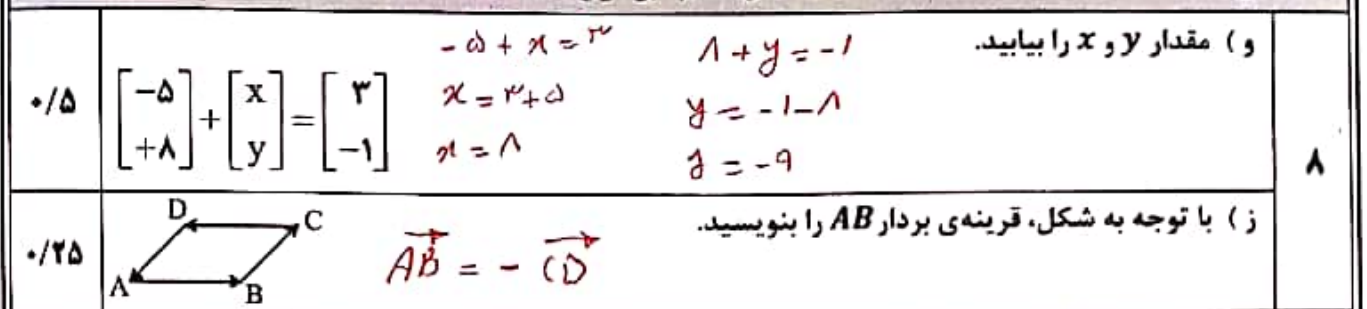 و ) مقدار y و x را بیابید.
[−۵ +۸] + [x y] = [۳ −۱]
- ۵ + x = ۳
x = ۳+۵
x = ۸
۸ + y = -۱
y = -۱-۸
y = -۹
۰/۵
۸
ز ) با توجه به شکل، قرینه‌ی بردار AB را بنویسید.
D C
A B
AB = - CD
۰/۲۵